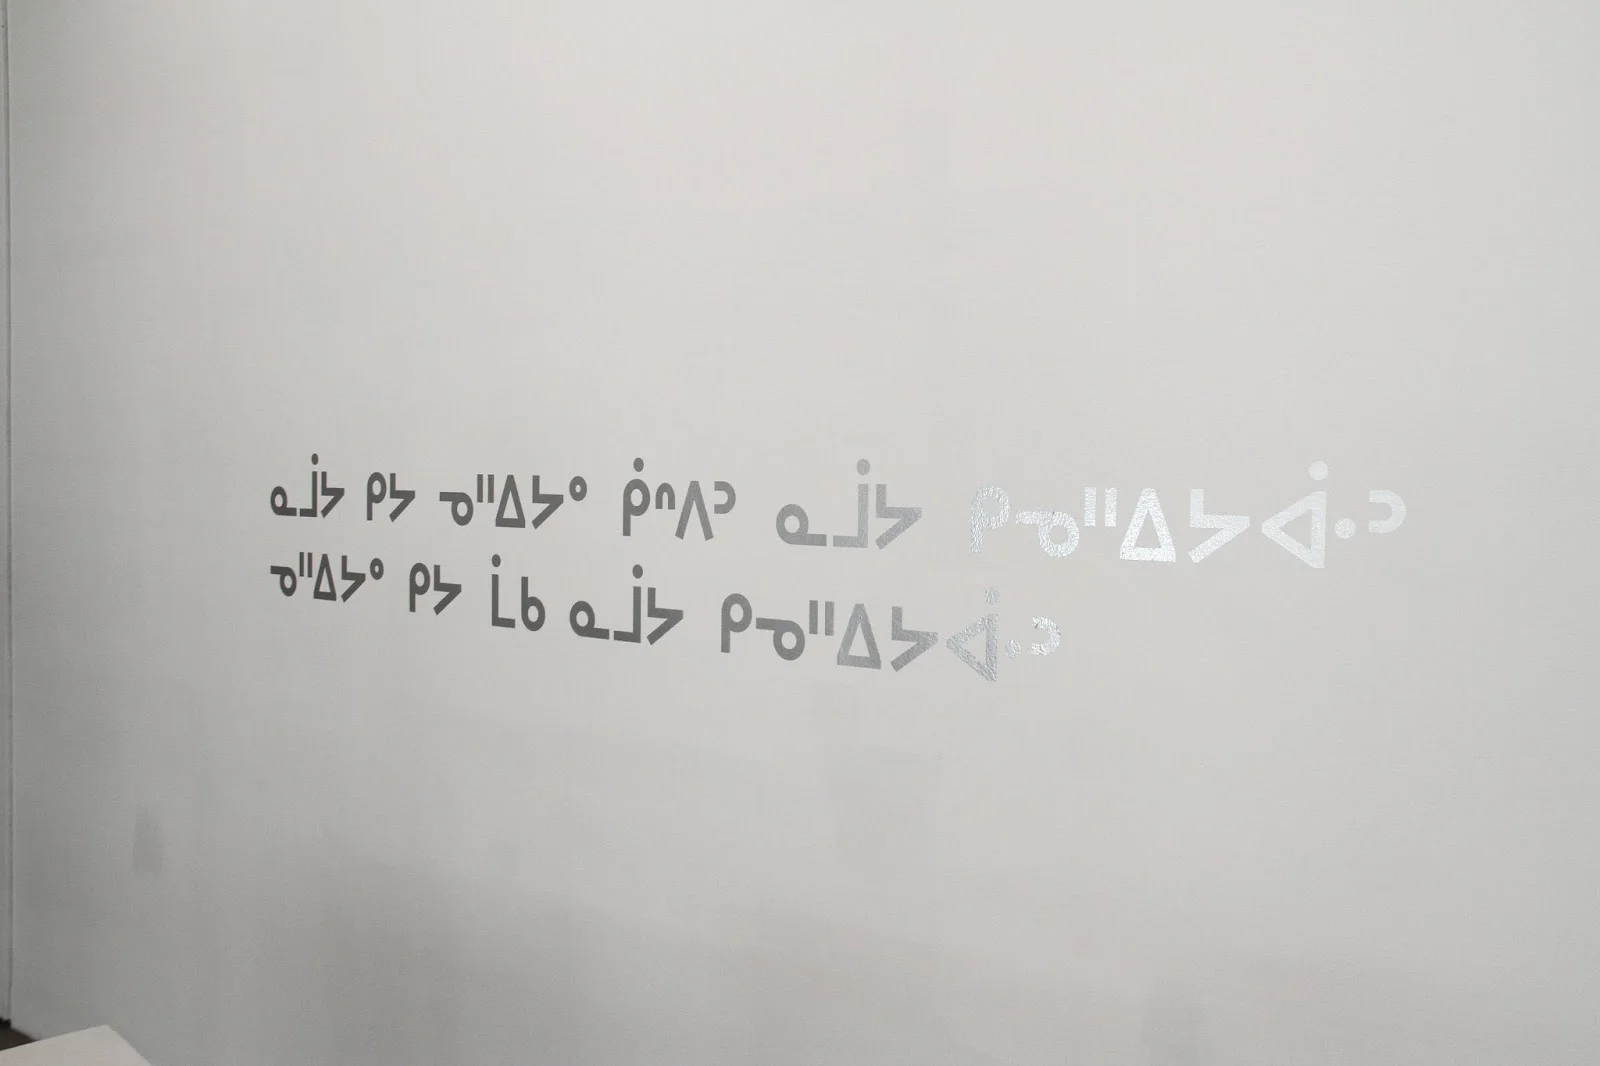 ᓇᒨᔭ ᑭᔭ ᓀᐦᐃᔭᐤ ᑮᐢᐱᐣ ᓇᒨᔭ ᑭᓀᐦᐃᔭᐚᐣ
ᓀᐦᐃᔭᐤ ᑭᔭ ᒫᑲ ᓇᒨᔭ ᑭᓀᐦᐃᔭᐚᐣ